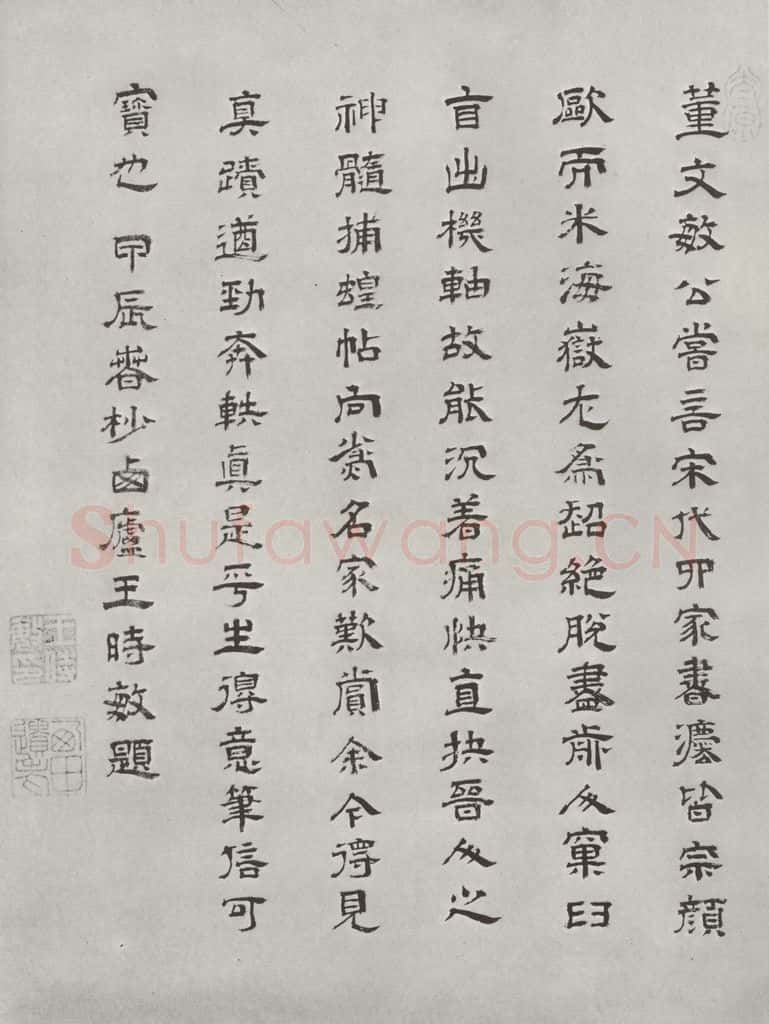 董文敏公嘗言宋代四家書灋皆宗顏
歐而米海嶽尤為超絕脫盡前人窠臼
自出機軸故能沉着痛快直抉晉人之
神髓捕蝗帖向為名家歎賞余今得見
真蹟遒勁奔軼眞是平生得意筆信可
寶也 甲辰春杪西廬王時敏題
Shufawang.CN
王時敏印